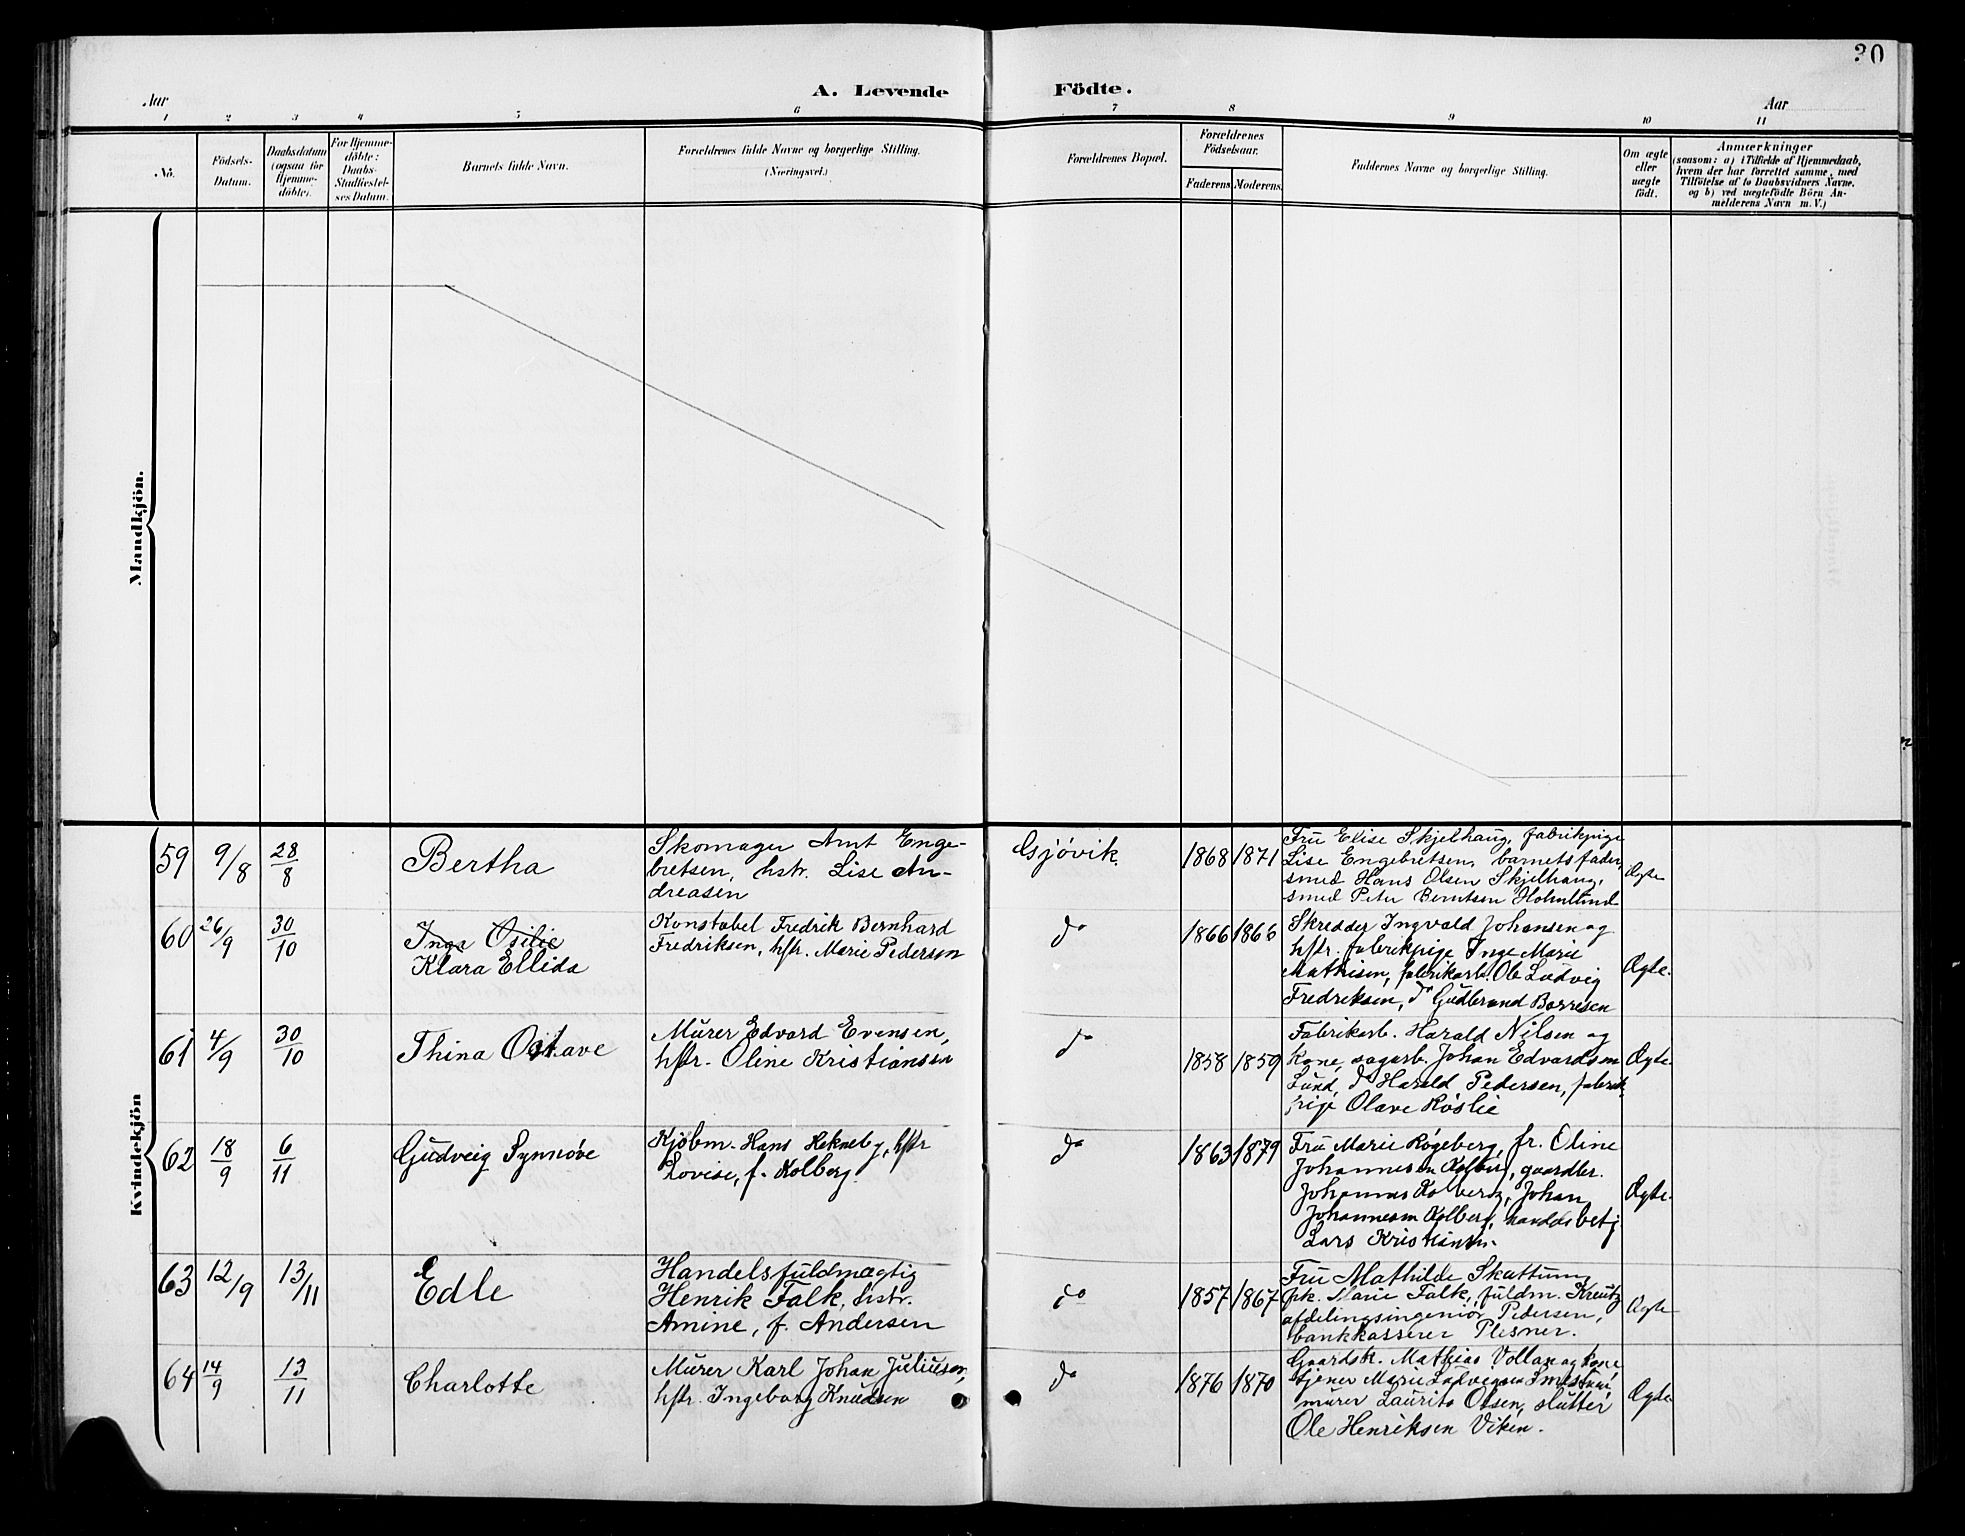 30
A. Levende Födte.
Aar
Aar
1 2 3 4 5 6 7 8 9 10 11
No.
Födsels-
Datum.
Daabsdatum
(ogsaa for
Hjemme-
döbte).
For Hjemme-
döbte:
Daabs-
Stadfæstel-
ses Datum.
Barnets fulde Navn.
Forældrenes fulde Navne og borgerlige Stilling.
(Næringsvei.)
Forældrenes Bopæl.
Forældrenes
Födselsaar.
Faderens.
Moderens.
Faddernes Navne og borgerlige Stilling.
Om ægte
eller
uægte
födt.
Anmærkninger
(saasom: a) i Tilfælde af Hjemmedaab,
hvem der har forrettet samme, med
Tilföielse af to Daabsvidners Navne.
og b) ved uægtefödte Börn An-
melderens Navn m. V.)
Mandkjön.
Kvindekjön
59 9/8 28/8 Bertha
Skomager Amt Enge-
bretsen, hstr. Lise An-
dreasen
Gjøvik
1868 1871
Fru Elise Skjelhaug, fabrikpige
Lise Engebretsen, barnets fader,
smed Hans Olsen Skjelhaug,
smed Peter Berntsen
Ægte
60 26/9 30/10 Inga Osilie
Klara Ellida
Konstabel Fredrik Bernhard
Fredriksen, hstr. Marie Pedersen
do
1866 1866
Skredder Ingvald Johansen og
hstr. fabrikpige Inga Marie
Mathisen, fabrikarb. Ole Ludvig
Fredriksen, do Gudbrand Borresen
Ægte.
61 4/9 30/10 Thina Octave
Murer Edvard Evensen,
hstr. Oline Kristiansen
do
1858 1859
Fabrikarb. Harald Nilsen og
kone, sagarb. Johan Edvardsen
Lund, do Harald Pedersen, fabrik-
pige Olave Røslie
Ægte.
62 18/9 6/11 Gudveig Synnøve
Kjøbm. Hans Hekneby, hstr
Lovise, f. Kolberg.
do
1863 1879
Fru Marie Røgeberg, fr. Oline
Johannesen Kolberg, gaardbr.
Johannes Kolberg, Johan
Johannesen Kolberg, handelsbetj
Lars Kristiansen.
Ægte.
63 12/9 13/11 Edle
Handelsfuldmægtig
Henrik Falk, hstr.
Amine, f. Andersen
do
1857 1867
Fru Mathilde Skattum,
frk. Marie Falk, fuldm. Kreutz
afdelingsingeniør Pedersen,
bankkasserer Plesner.
Ægte
64 14/9 13/11 Charlotte
Murer Karl Johan Juliusen,
hstr. Ingeborg Knudsen
do
1876 1870
Gaardsk. Mathias Vollan og kone
tjener Marie Ludvigsen
murer Laurits Olsen, slutter
Ole Henriksen Viken.
Ægte